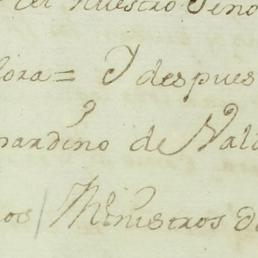 nuestro Seño
lora = Y despues
nardino de Val
nos / Ministros de